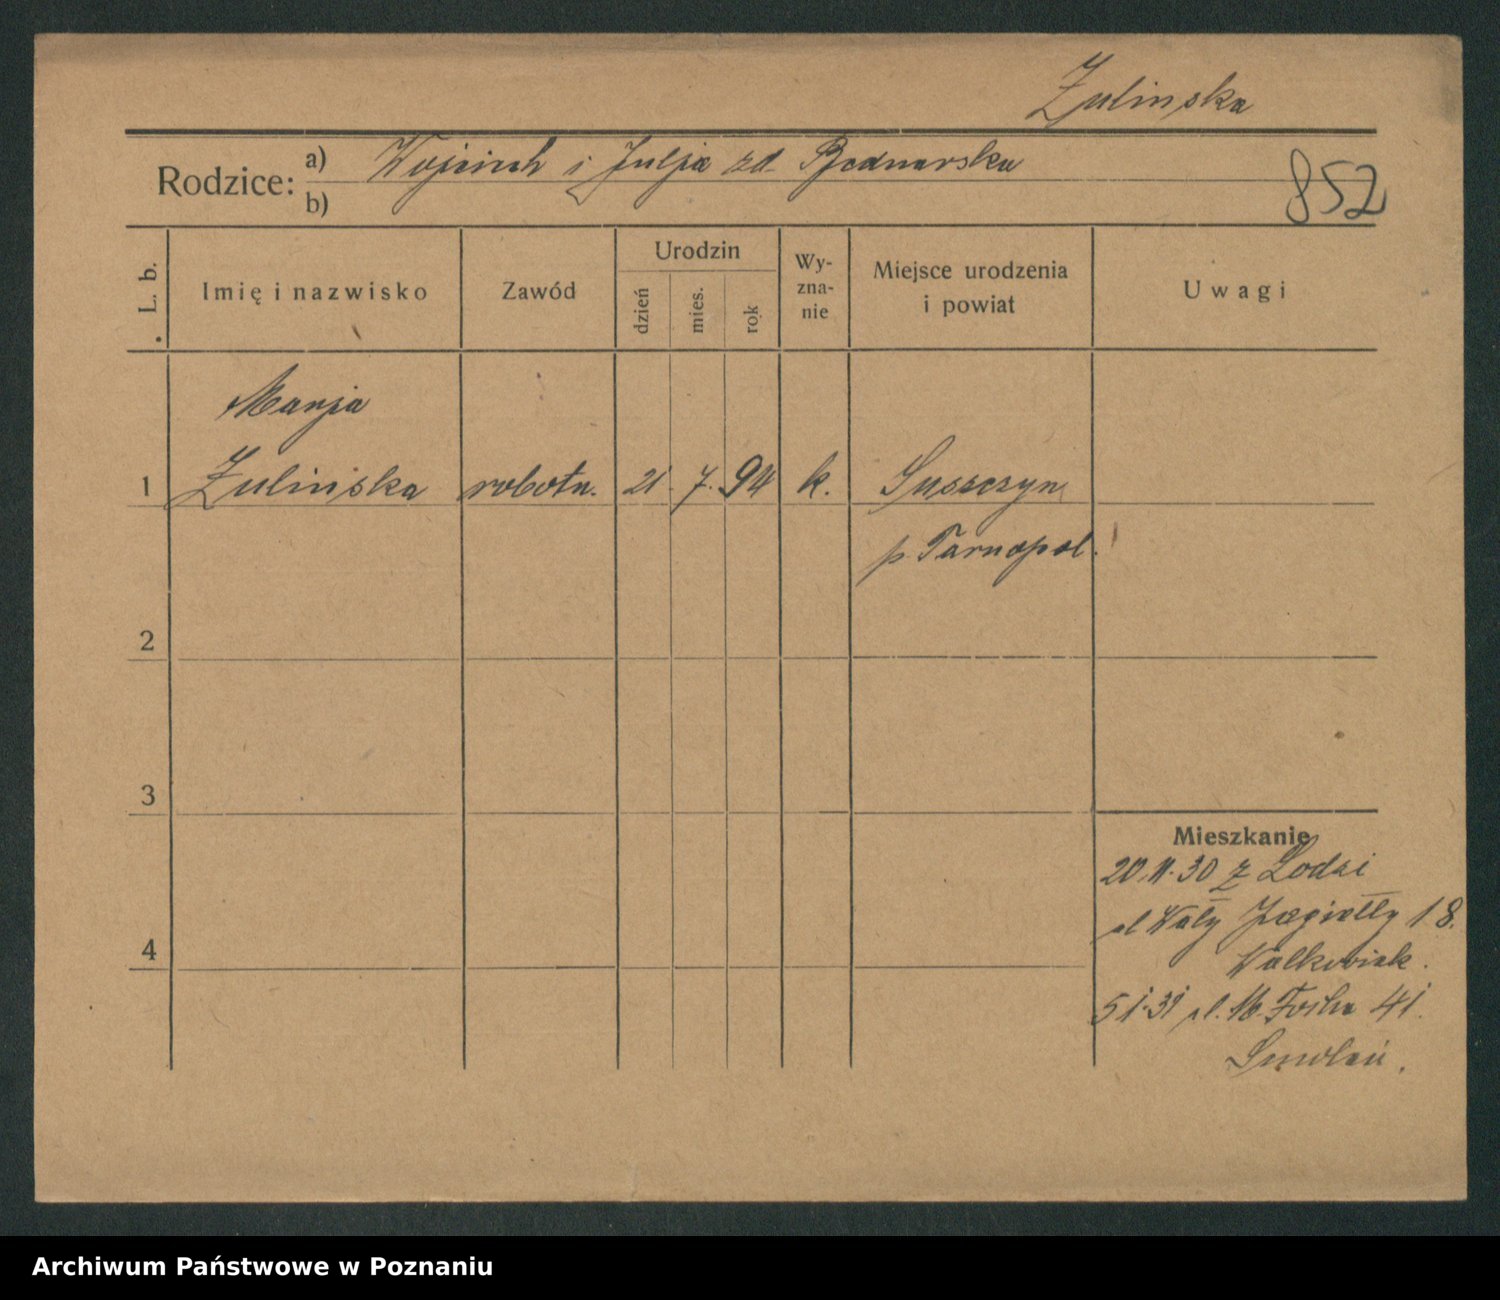 Żulinska
Rodzice:
a) Wojciech i Julja zd. Bednarska
b)
852
L. b.
Imię i nazwisko
Zawód
Urodzin
dzień
mies.
rok
Wy-
zna-
nie
Miejsce urodzenia
i powiat
Uwagi
Marja
1 Żulińska robotn. 21. 7. 94 k. Suszczyn
p. Tarnopol.
2
3
Mieszkanie
20.11.30 z Łodzi
Wały Jagiełły 18.
4
Walkowiak.
5 1.31 pl. M. Focha 41.
Smoleń.
Archiwum Państwowe w Poznaniu